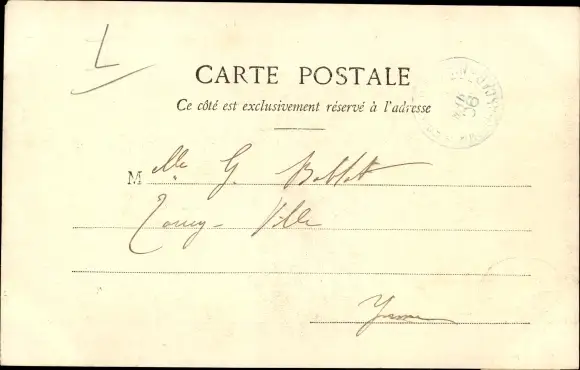 CARTE POSTALE
Ce côté est exclusivement réservé à l'adresse
Mlle G. Bablot
Toucy-Ville
Yonne